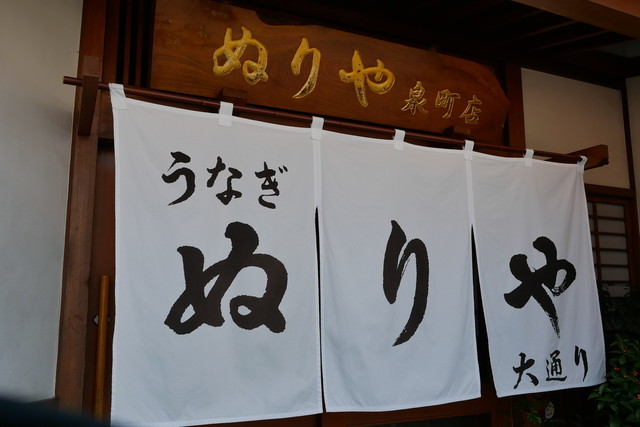 ぬりや 泉町店
うなぎ
ぬりや
大通り